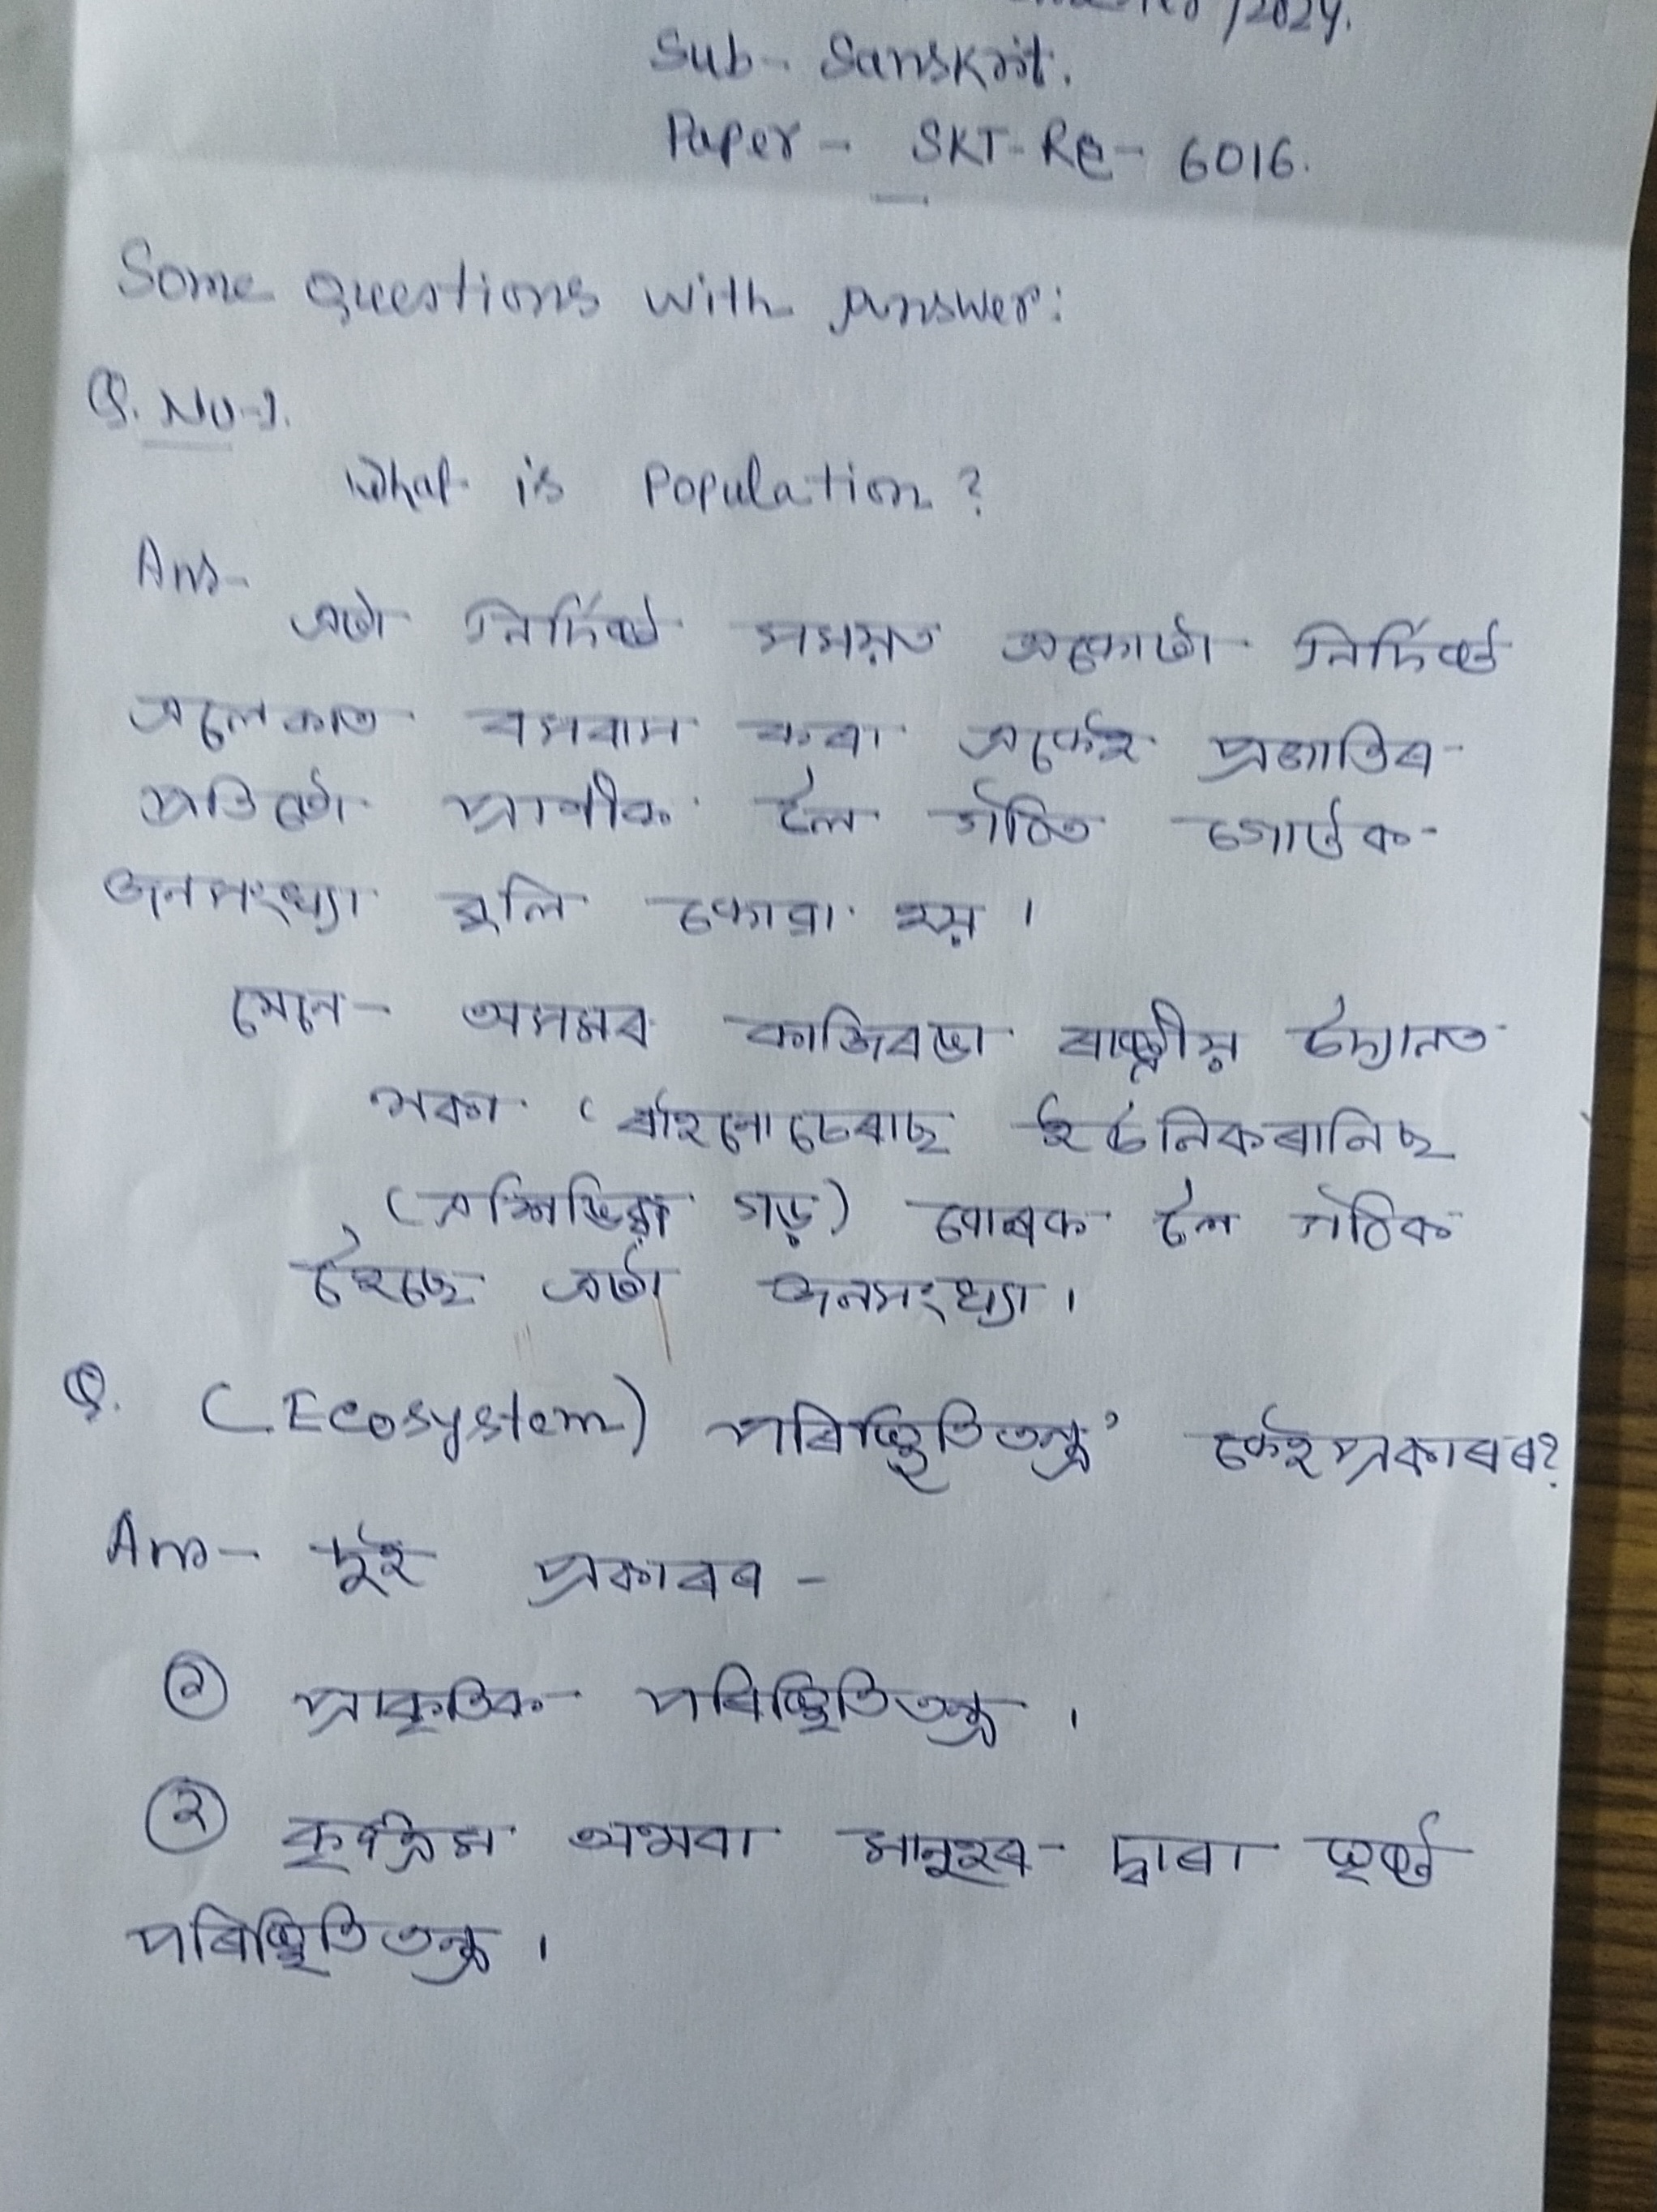 /2024.
Sub- Sanskrit.
Paper - SKT-RE- 6016.
Some questions with Answer:
Q. No-1.
What is Population?
Ans-
এটা নিৰ্দিষ্ট সময়ত একোটা নিৰ্দিষ্ট
এলেকাত বসবাস কৰা একেই প্ৰজাতিৰ
প্ৰতিটো প্ৰাণীক লৈ গঠিত গোটক
জনসংখ্যা বুলি কোৱা হয়।
যেনে- অসমৰ কাজিৰঙা ৰাষ্ট্ৰীয় উদ্যানত
থকা ৰাইনোচেৰাছ ইউনিকৰনিছ
(এশিঙিয়া গড়) বোৰক লৈ গঠিক
হৈছে এটা জনসংখ্যা।
Q. (Ecosystem) পৰিস্থিতিতন্ত্ৰ' কেইপ্ৰকাৰৰ?
Ans- দুই প্ৰকাৰৰ -
১ প্ৰাকৃতিক পৰিস্থিতিতন্ত্ৰ।
২ কৃত্ৰিম অথবা মানুহৰ দ্বাৰা সৃষ্ট
পৰিস্থিতিতন্ত্ৰ।